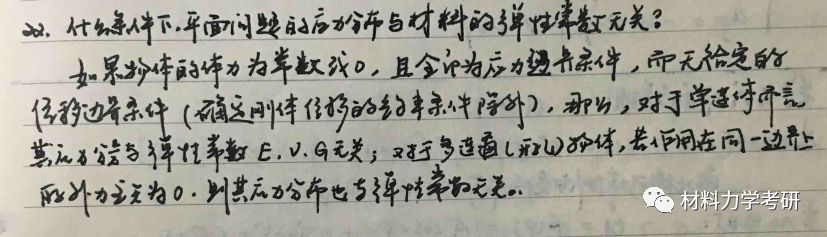 22. 什么条件下,平面问题的应力分布与材料的弹性常数无关?
如果物体的体力为常数或0,且全部为应力边界条件,而无给定的
位移边界条件(确定刚体位移的约束条件除外),那么,对于单连体而言
其应力分布与弹性常数E、υ、G无关;对于多连通(形心)物体,若作用在同一边界上
的外力主矢为0.则其应力分布也与弹性常数无关。
材料力学考研